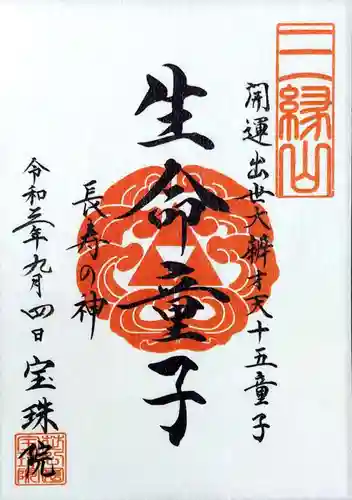 三縁山
開運出世大辨才天十五童子
生命童子
長寿の神
令和三年九月四日
宝珠院